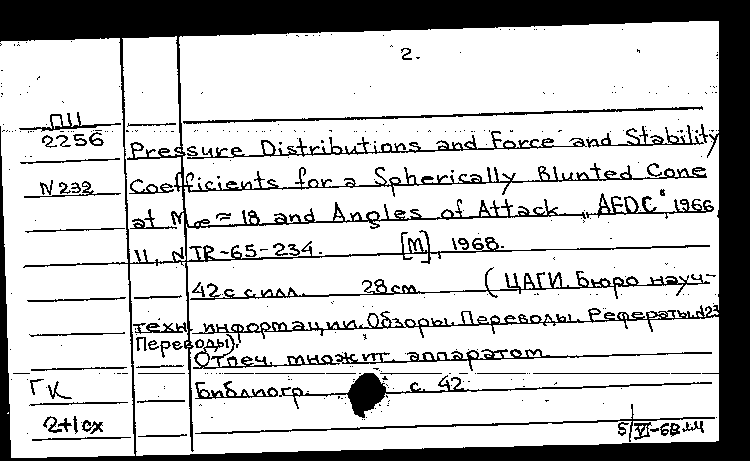 2.
П11
2256
Pressure Distributions and Force and Stability
N 232
Coefficients for a Spherically Blunted Cone
at M∞ ≈ 18 and Angles of Attack „AEDC“, 1966,
11, N TR-65-234. [М], 1968.
42 с с илл. 28 см. (ЦАГИ. Бюро науч.-
техн. информации. Обзоры. Переводы. Рефераты. №23
Переводы).
Отпеч. множит. аппаратом.
ГК
Библиогр. с. 42
2+1 сх
5/VI-68